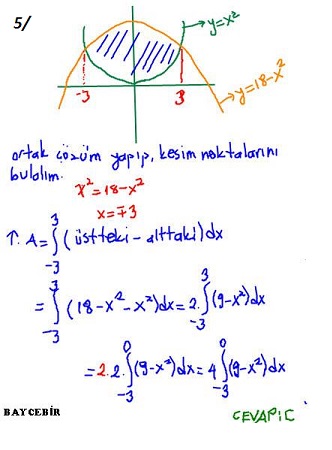 5/
y=x²
-3 3
y=18-x²
ortak çözüm yapıp, kesim noktalarını
bulalım.
x²=18-x²
x=∓3
↑. A=∫₋₃³(üstteki-alttaki)dx
=∫₋₃³(18-x²-x²)dx=2.∫₋₃³(9-x²)dx
=2.2.∫₋₃⁰(9-x²)dx=4∫₋₃⁰(9-x²)dx
BAYCEBİR
CEVAP:C